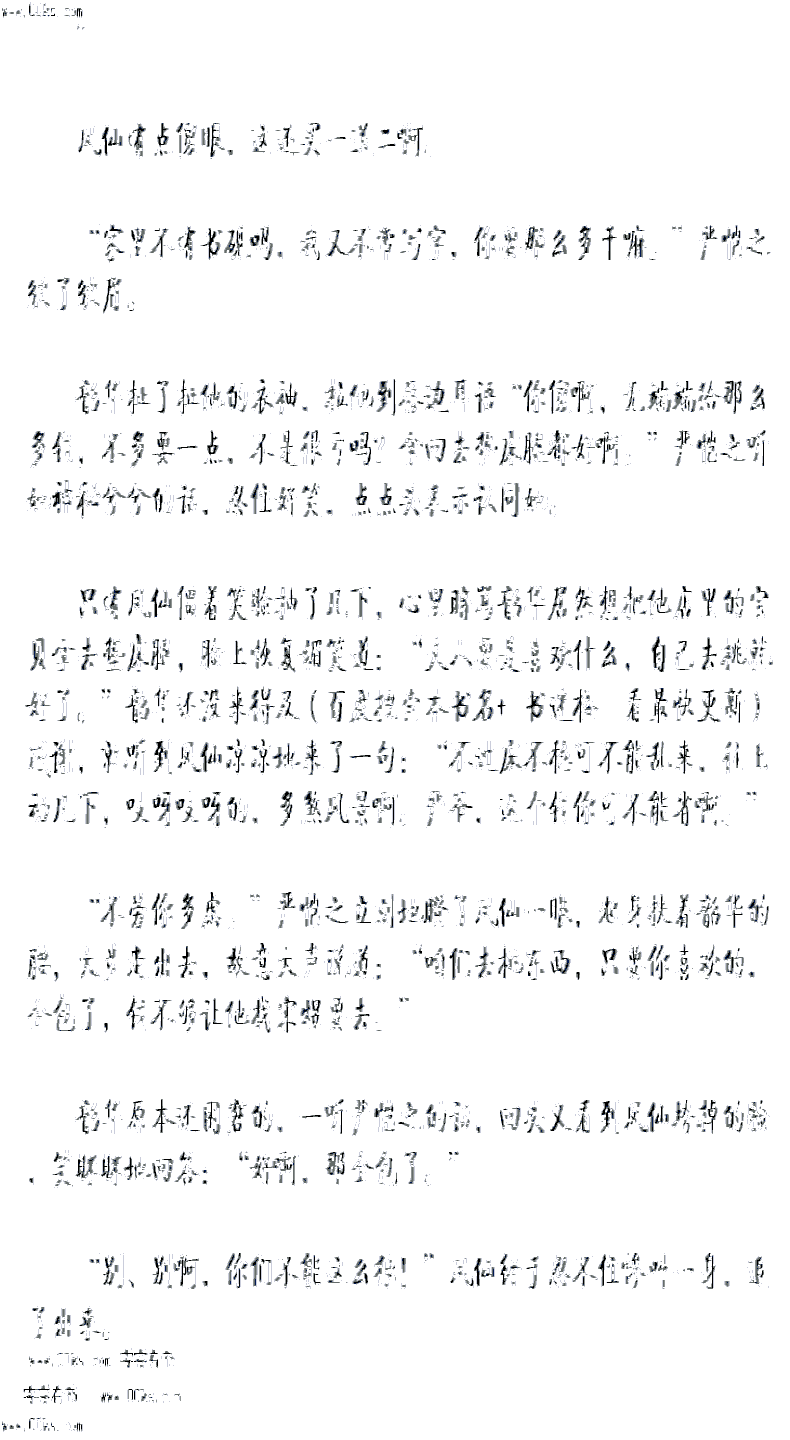 www.00ks.com
凤仙有点傻眼，这还买一送二啊。
“家里不有书砚吗，我又不常写字，你要那么多干嘛。”严恺之
皱了皱眉。
韵华扯了扯他的衣袖，拉他到旁边耳语“你傻啊，无端端给那么
多钱，不多要一点，不是很亏吗？拿回去垫床腿都好啊。”严恺之听
她神秘兮兮的话，忍住好笑，点点头表示认同她。
只有凤仙僵着笑脸抽了几下，心里暗骂韵华居然想把他店里的宝
贝拿去垫床脚，脸上恢复媚笑道：“夫人要是喜欢什么，自己去挑就
好了。”韵华还没来得及(百度搜索本书名+ 书这样 看最快更新)
感谢，就听到凤仙凉凉地来了一句：“不过床不稳可不能乱来，往上
动几下，吱呀吱呀的，多煞风景啊，严爷，这个钱你可不能省啊。”
“不劳你多虑。”严恺之立刻地瞪了凤仙一眼，起身扶着韵华的
腰，大步走出去，故意大声说道：“咱们去挑东西，只要你喜欢的，
全包了，钱不够让他找宋熠要去。”
韵华原本还困窘的，一听严恺之的话，回头又看到凤仙垮掉的脸
，笑眯眯地回答：“好啊，那全包了。”
“别、别啊，你们不能这么狠！”凤仙终于忍不住惨叫一身，追
了出来。
www.00ks.com
www.00ks.com
www.00ks.com